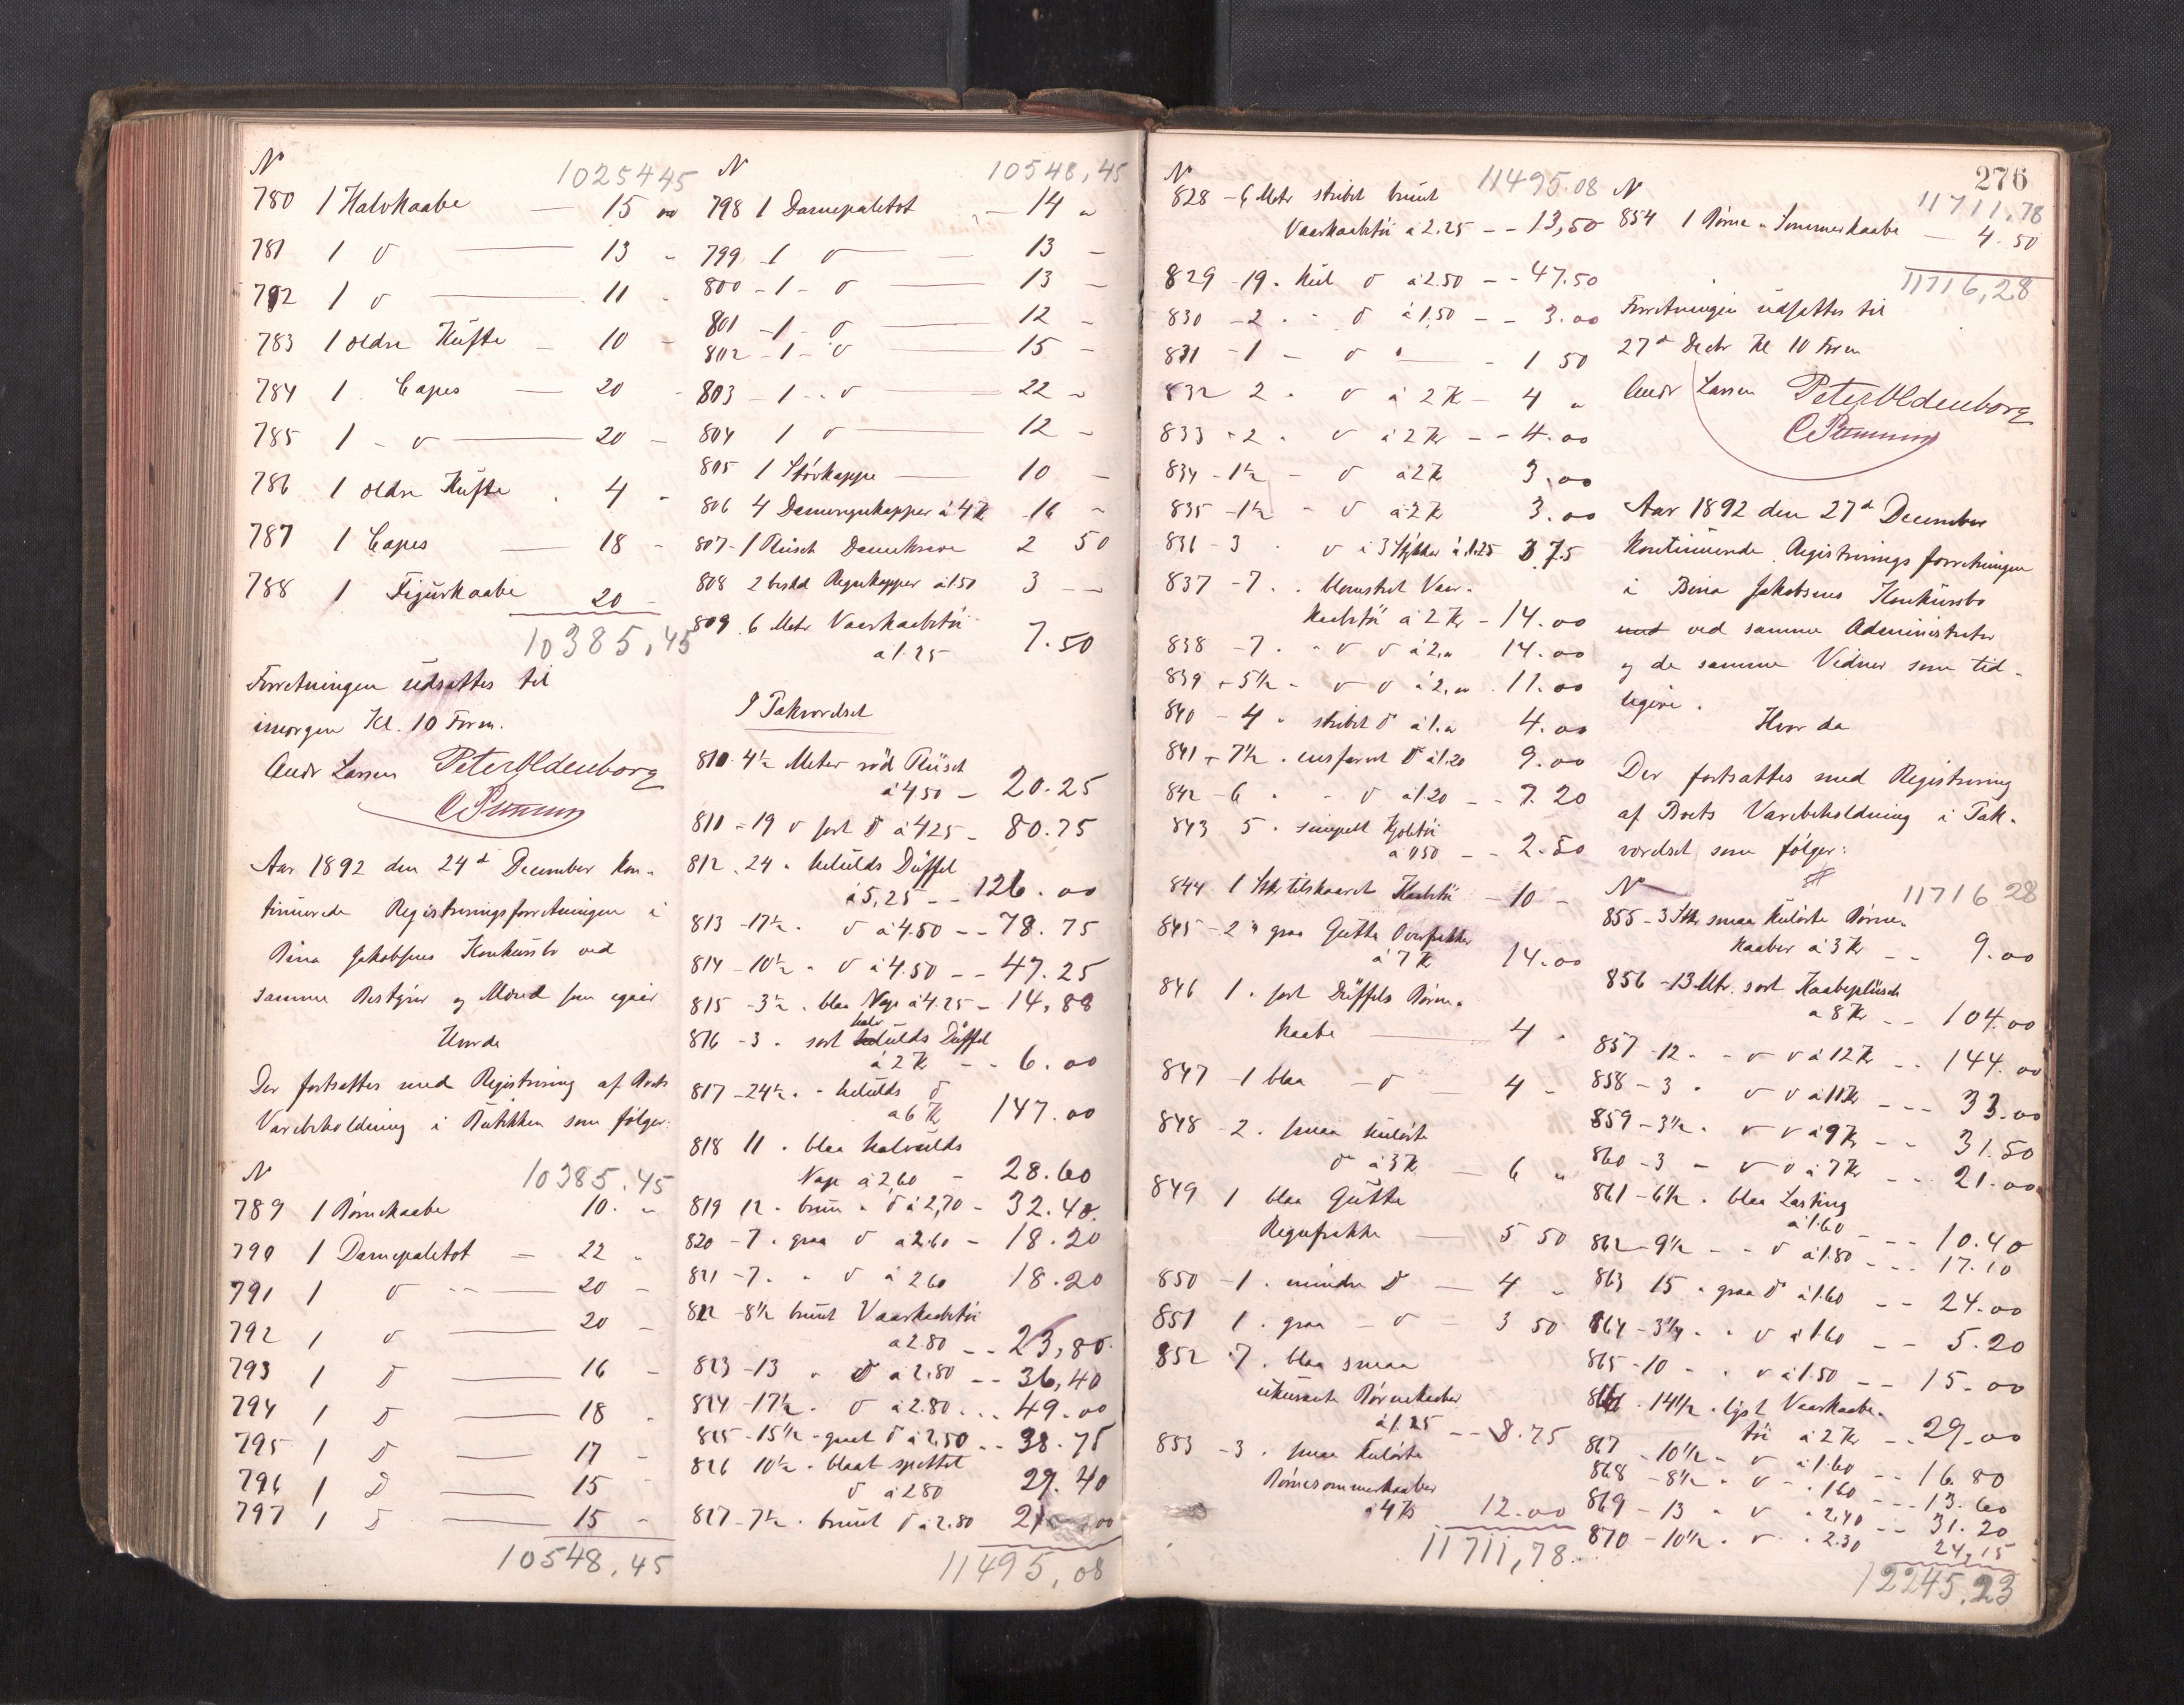 N 1025445
780 1 Halvkaabe — 15 "
781 1 d — 13 "
782 1 d — 11 "
783 1 ældre Küfte — 10 "
784 1 Capes — 20 "
785 1 - d — 20 -
786 1 ældre Küfte . 4 -
787 1 Capes — 18 -
788 1 Figürkaabe 20 -
10385,45
Forretningen üdsattes til
imorgen Kl. 10 Form.
Andr Larsen Peter Oldenborg
Aar 1892 den 24d December kon-
tinuerede Registreringsforretningen i
Bina Jakobsens Konkürsbo ved
samme Bestyrer og Mænd som igaar
Hvorda
Der fortsattes med Registrering af Boets
Varebeholdning i Bütikken som følger:
N 10385.45
789 1 Börnekaabe 10. "
790 1 Damepaletot — 22 "
791 1 d — 20 -
792 1 d — 20 -
793 1 d — 16 -
794 1 d — 18 -
795 1 d — 17 -
796 1 d — 15 -
797 1 d — 15 -
10548.45
N 10548,45
798 1 Damepaletot — 14 "
799 - 1 d — 13 -
800 - 1 - d — 13 -
801 - 1 - d — 12 -
802 - 1 - d — 15 -
803 - 1 - d — 22 -
804 1 d — 12 -
805 1 Störkappe — 10 -
806 4 Dameregnkapper à 4 Kr 16 -
807 - 1 Plüsch Damekrave 2 50
808 2 beskd Regnkapper à 1.50 3 --
809 . 6 Metr Vaarkaabetöi
à 1.25 7.50
I Pakværelset
810 4½ Meter röd Plüsch
à 4.50 — 20.25
811 - 19 " sort d à 4.25 - 80.75
812 . 24 " helülds Düffel
à 5,25 -- 126.00
813 - 17½ . d à 4.50 -- 78.75
814 - 10½ " d à 4.50 -- 47.25
815 - 3½ . blaa Nap à 4.25 - 14,88
halv
816 - 3 . sort helülds Düffel
à 2 K -- 6.00
817 - 24½ . - helülds d
à 6 Kr 147.00
818 11 . blaa halvülds
Nap à 2,60 - 28.60
819 12 - brün " d à 2,70 - 32.40
820 - 7 . graa d à 2.60 - 18.20
821 - 7 . " d à 2.60 18.20
822 - 8½ brünt Vaarkaabetöi
à 2.80 -- 23,80
823 - 13 " d à 2.80 -- 36,40
824 - 17½ . d à 2.80 ... 49.00
825 - 15½ - graat d à 2,50 -- 38.75
826 10½ . blaat spettet
d à 2.80 29.40
827 - 7½ . brünt d à 2.80 21.00
11495,08
276
N 11495.08
828 - 6 Metr stribet brünt
Vaarkaabetöi à 2.25 -- 13,50
829 - 19 . kül d à 2.50 -- 47.50
830 - 2 . - d à 1,50 -- 3.00
831 - 1 - d — 1 50
832 2 . d à 2 K - 4 "
833 - 2 . d à 2 Kr -- 4.00
834 - 1½ - d à 2 K 3.00
835 - 1½ - d à 2 Kr 3.00
836 - 3 . d i 3 Stykker à 1.25 3.75
837 - 7 . . blomstret Vaar-
kaabetöi à 2 Kr - 14.00
838 - 7 . - d d à 2," 14.00
839 - 5½ - d d à 2,00 . 11.00
840 - 4 . stribet d à 1." 4.00
841 - 7½ . ensfarvet d à 1.20 9.00
842 - 6 . - d à 1.20 -- 7.20
843 5 . simpelt Kjoletöi
à 0.50 -- 2.50
844 1 Stk tilskaaret Kaabetöi -10-
845 - 2 " graa Gutta Overfrakker
à 7 K 14.00
846 1 . sort Düffels Börne-
kaabe — 4 .
847 - 1 blaa - d — 4 -
848 - 2 . smaa külörte
d à 3 K — 6 "
849 1 blaa Gütta
Regnfrakke — 5 50
850 - 1 . mindre d — 4 -
851 1 . graa - d - 3 50
852 . 7 . blaa smaa
ükürante Börnekaaber
à 1.25 -- 8.75
853 - 3 . smaa külörte
Börnesommerkaaber
à 4 K 12.00
11711,78
N 11711,78
854 1 Börne - Sommerkaabe — 4.50
11716,28
Forretningen üdsattes til
27d Decbr Kl 10 Form
Andr Larsen Peter Oldenborg
Aar 1892 den 27d December
Kontinüerede Registrerings forretningen
i Bina Jakobsens Konkürsbo
ved samme Administrator
og de samme Vidner som tid-
ligere.
Hvor da
Der fortsattes med Registrering
af Boets Varebeholdning i Pak-
værelset som følger:
N 11716.28
855 - 3 Stk smaa külörte Börne-
kaaber à 3 K -- 9.00
856 - 13 Mtr. sort Kaabeplüsch
à 8 Kr -- 104.00
857 - 12 . - d d à 12 K -- 144.00
858 - 3 . d d à 11 Kr --- 33.00
859 - 3½ . d d à 9 K -- 31.50
860 - 3 - d d à 7 Kr --- 21.00
861 - 6½ . blaa Lasting
à 1.60 --- 10.40
862 - 9½ - - d à 1.80 --- 17.10
863 15 " graa d à 1.60 -- 24.00
864 - 3¼ . . d à 1.60 -- 5.20
865 - 10 - . d à 1.50 -- 15.00
866 . 14½ . lyst Vaarkaabe-
töi à 2 Kr -- 29.00
867 - 10½ - d à 1.60 -- 16.80
868 - 8½ - d - . 1.60 --- 13.60
869 - 13 " d " 2,40 -- 31.20
870 - 10½ . d . 2.30 24,15
12245.23